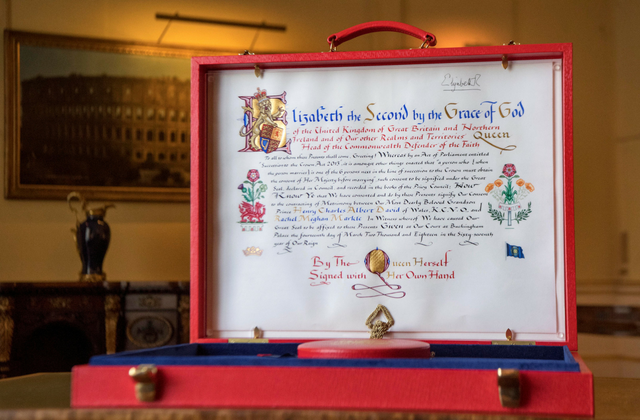 Elizabeth R
Elizabeth the Second by the Grace of God
of the United Kingdom of Great Britain and Northern
Ireland and of Our other Realms and Territories Queen
Head of the Commonwealth Defender of the Faith
To all to whom these Presents shall come Greeting! Whereas by an Act of Parliament entitled
"Succession to the Crown Act 2013", it is amongst other things enacted that "a person who (when
the person marries) is one of the 6 persons next in the line of succession to the Crown must obtain
the consent of Her Majesty before marrying", such consent to be signified under the Great
Seal, declared in Council, and recorded in the books of the Privy Council; Now
Know Ye that We have consented and do by these Presents signify Our Consent
to the contracting of Matrimony between Our Most Dearly Beloved Grandson
Prince Henry Charles Albert David of Wales, K.C.V.O., and
Rachel Meghan Markle. In Witness whereof We have caused Our
Great Seal to be affixed to these Presents Given at Our Court at Buckingham
Palace the fourteenth day of March Two Thousand and Eighteen in the Sixty-seventh
year of Our Reign
By The Queen Herself
Signed with Her Own Hand